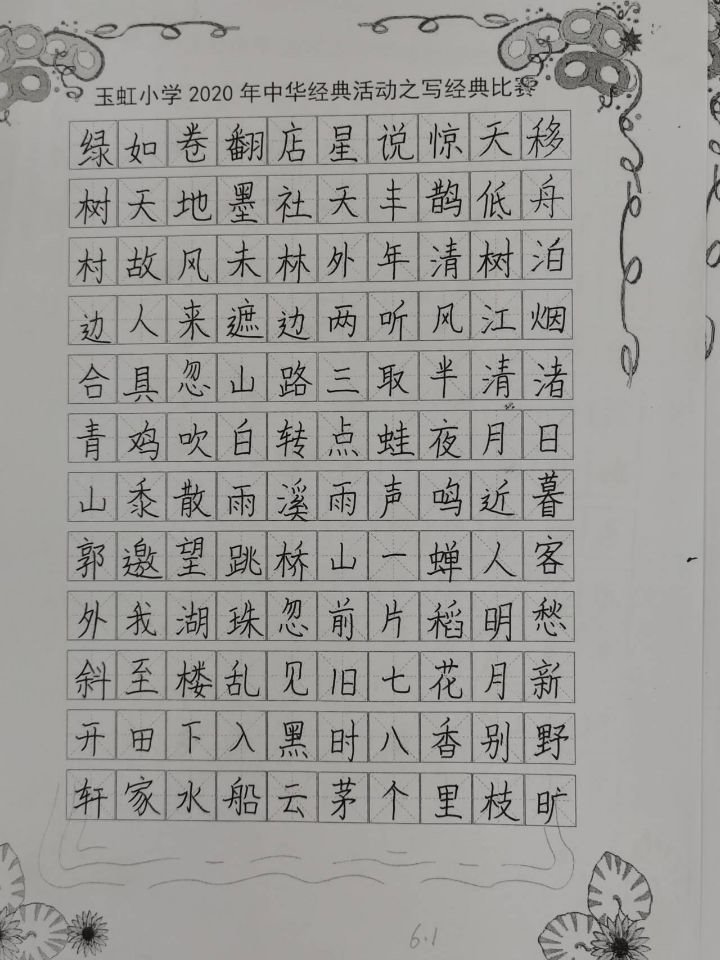 玉虹小学2020年中华经典活动之写经典比赛
移舟泊烟渚日暮客愁新野旷
天低树江清月近人明月别枝
惊鹊清风半夜鸣蝉稻花香里
说丰年听取蛙声一片七八个
星天外两三点雨山前旧时茅
店社林边路转溪桥忽见黑云
翻墨未遮山白雨跳珠乱入船
卷地风来忽吹散望湖楼下水
如天故人具鸡黍邀我至田家
绿树村边合青山郭外斜开轩
6.1